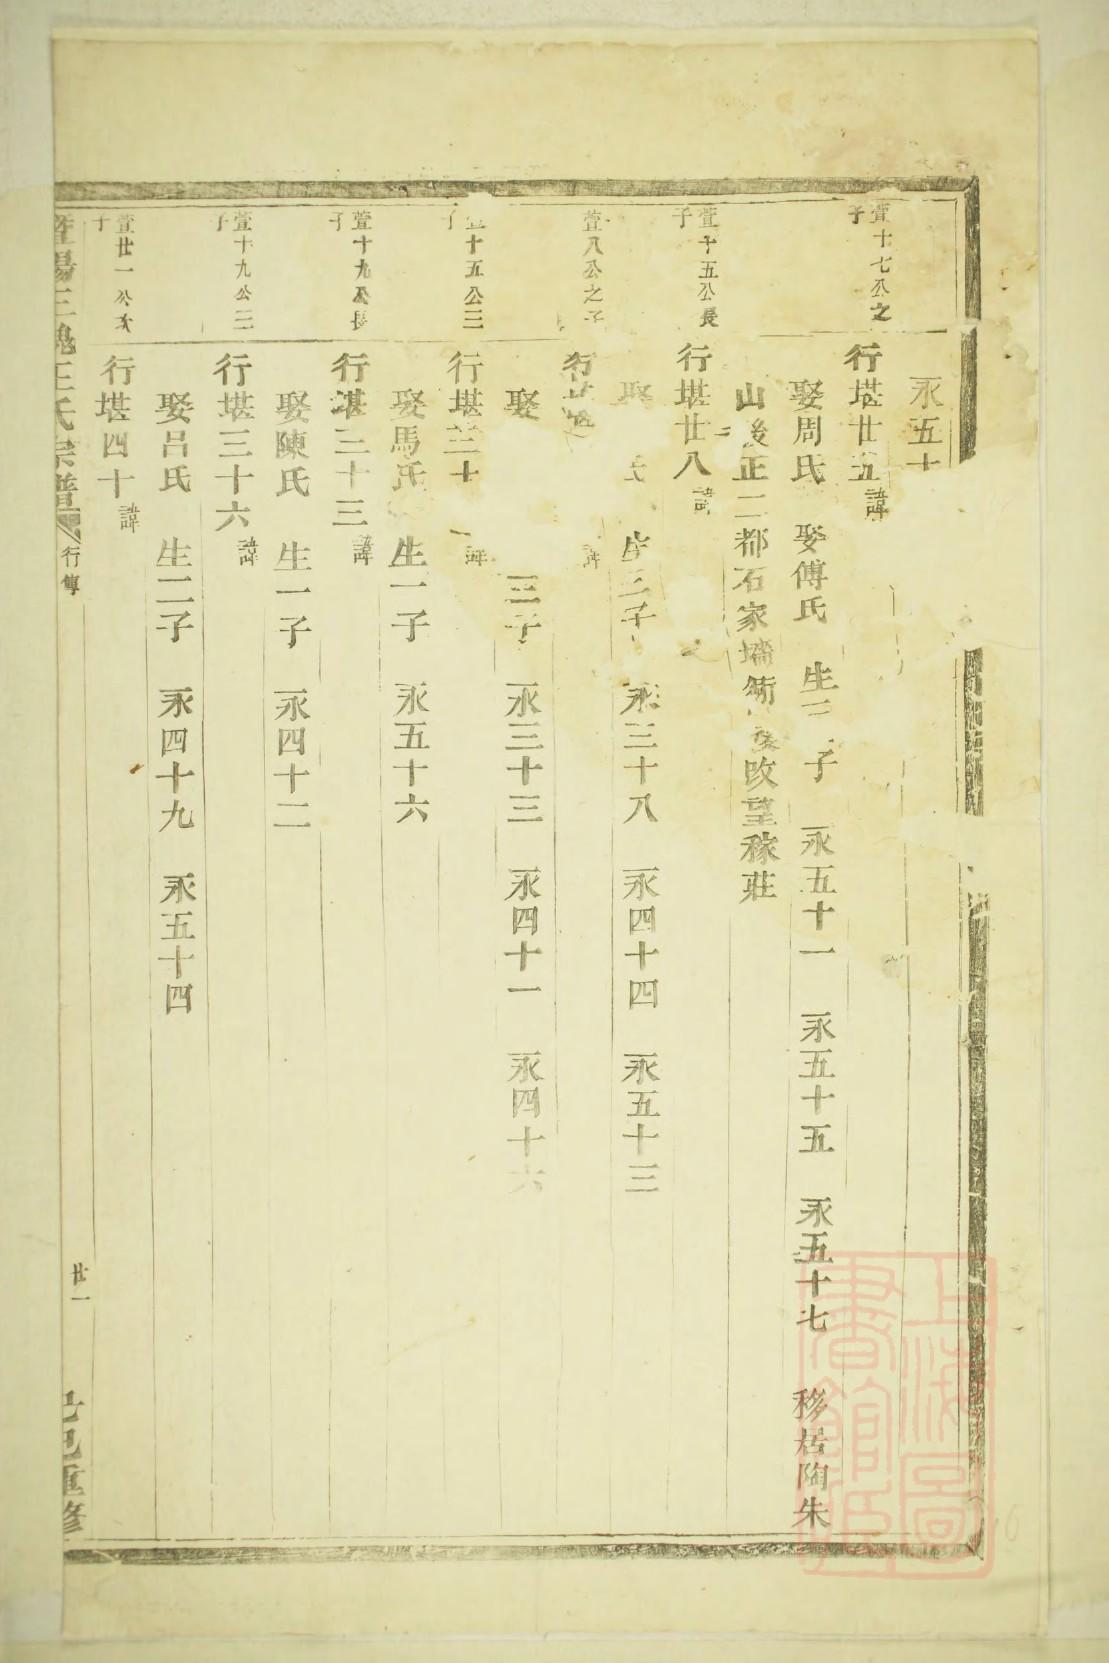 永五十
萱十七公之
子
行堪廿五諱
娶周氏 娶傅氏 生 子 永五十一 永五十五 永五十七 移居陶朱
山後正二都石家墻 後改望稼莊
萱十五公長
子
行堪廿八諱
娶 氏 生三子 永三十八 永四十四 永五十三
萱八公之子
行 諱
娶 三子 永三十三 永四十一 永四十六
十五公三
子
行堪三十一諱
娶馬氏 生一子 永五十六
萱十九公長
子
行堪三十三諱
娶陳氏 生一子 永四十二
萱十九公三
子
行堪三十六諱
娶呂氏 生二子 永四十九 永五十四
萱廿一公次
子
行堪四十諱
暨陽三槐王氏宗譜 行傳 廿一 己巳重修
上海圖
書館藏